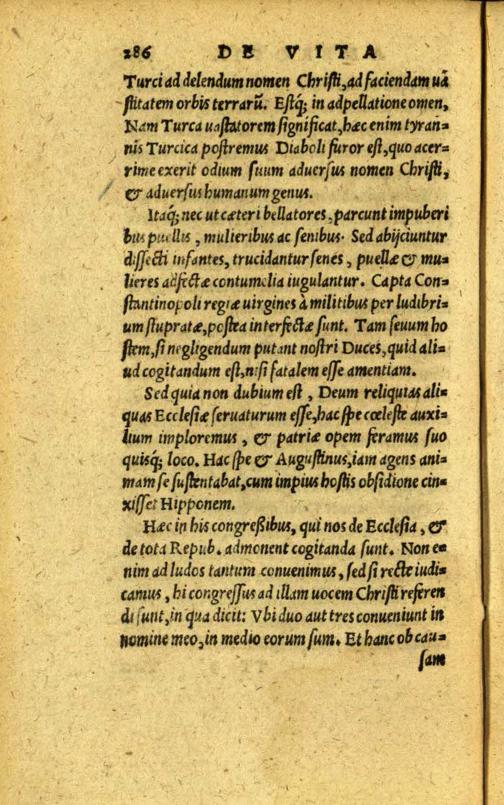 286 DE VITA
Turci ad delendum nomen Christi, ad faciendam uā
stitatem orbis terrarū. Estq́; in adpellatione omen,
Nam Turca uastatorem significat, hæc enim tyran=
nis Turcica postremus Diaboli furor est, quo acer=
rime exerit odium suum aduersus nomen Christi,
& aduersus humanum genus.
Itaq́; nec ut cæteri bellatores, parcunt impuberi
bus puellis, mulieribus ac senibus. Sed abijciuntur
dissecti infantes, trucidantur senes, puellæ & mu=
lieres adfectæ contumelia iugulantur. Capta Con=
stantinopoli regiæ uirgines à militibus per ludibri=
um stupratæ, postea interfectæ sunt. Tam seuum ho
stem, si negligendum putant nostri Duces, quid ali=
ud cogitandum est, nisi fatalem esse amentiam.
Sed quia non dubium est, Deum reliquias ali=
quas Ecclesiæ seruaturum esse, hac spe cœleste auxi=
lium imploremus, & patriæ opem feramus suo
quisq́; loco. Hac spe & Augustinus, iam agens ani=
mam se sustentabat, cum impius hostis obsidione cin=
xisset Hipponem.
Hæc in his congreßibus, qui nos de Ecclesia, &
de tota Repub. admonent cogitanda sunt. Non e=
nim ad ludos tantum conuenimus, sed si recte iudi=
camus, hi congressus ad illam uocem Christi referen
di sunt, in qua dicit: Vbi duo aut tres conueniunt in
nomine meo, in medio eorum sum. Et hanc ob cau=
sam